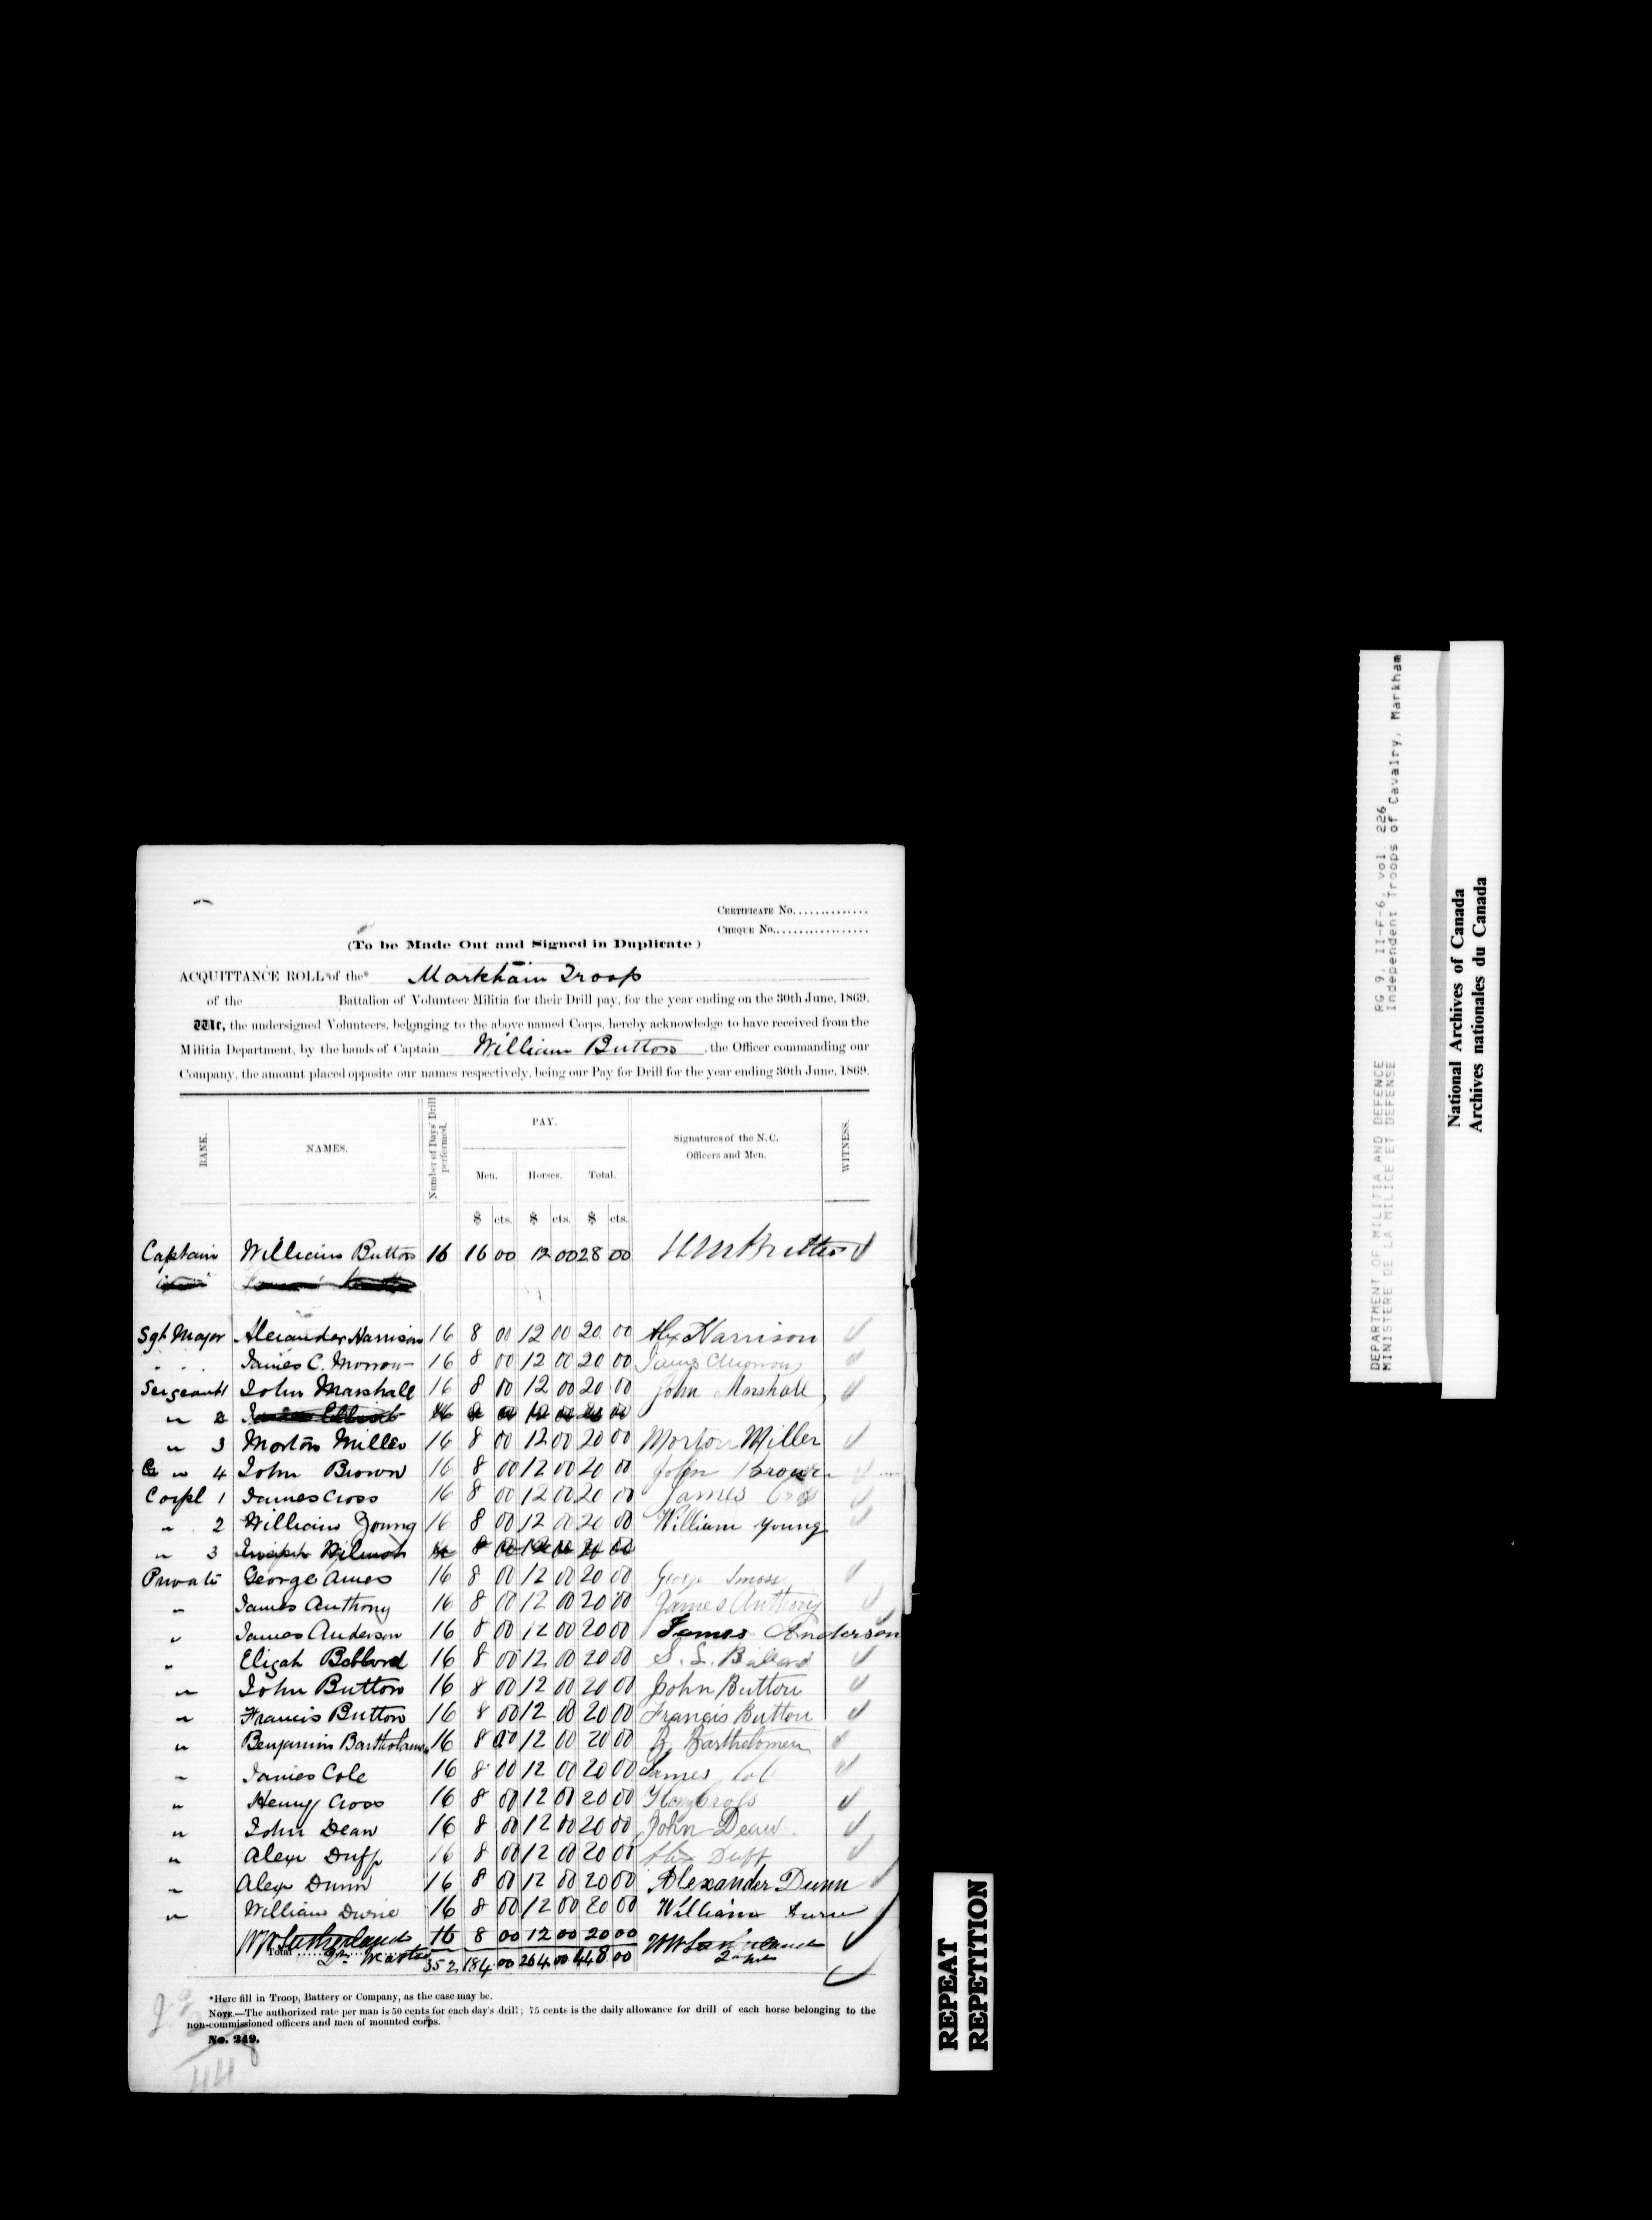 CERTIFICATE No.
CHEQUE No.
(To be Made Out and Signed in Duplicate)
ACQUITTANCE ROLL of the* Markham Troop
of the Battalion of Volunteer Militia for their Drill pay, for the year ending on the 30th June, 1869.
We, the undersigned Volunteers, belonging to the above named Corps, hereby acknowledge to have received from the
Militia Department, by the hands of Captain William Button, the Officer commanding our
Company, the amount placed opposite our names respectively, being our Pay for Drill for the year ending 30th June, 1869.
RANK. NAMES. Number of Days' Drill performed. PAY. Signatures of the N.C. Officers and Men. WITNESS.
Men. Horses. Total.
$ cts. $ cts. $ cts.
Captain William Button 16 16 00 12 00 28 00 Wm Button
Sgt Major Alexander Harrison 16 8 00 12 00 20 00 Alex Harrison
" " James C. Morrow 16 8 00 12 00 20 00 James C Morrow
Sergeant 1 John Marshall 16 8 00 12 00 20 00 John Marshall
" 2 James Elliott 16 8 00 12 00 20 00
" 3 Morton Miller 16 8 00 12 00 20 00 Morton Miller
" 4 John Brown 16 8 00 12 00 20 00 John Brown
Corpl 1 James Cross 16 8 00 12 00 20 00 James Cross
" 2 William Young 16 8 00 12 00 20 00 William Young
" 3 Joseph Wilmot 16 8 00 12 00 20 00
Private George Ames 16 8 00 12 00 20 00 George
" James Anthony 16 8 00 12 00 20 00 James Anthony
" James Anderson 16 8 00 12 00 20 00 James Anderson
" Elijah 16 8 00 12 00 20 00 Ballard
" John Button 16 8 00 12 00 20 00 John Button
" Francis Button 16 8 00 12 00 20 00 Francis Button
" Benjamin Bartholomew 16 8 00 12 00 20 00 B. Bartholomew
" James Cole 16 8 00 12 00 20 00 James Cole
" Henry Cross 16 8 00 12 00 20 00 Henry Cross
" John Dean 16 8 00 12 00 20 00 John Dean
" Alex Duff 16 8 00 12 00 20 00 Alex Duff
" Alex Dunn 16 8 00 12 00 20 00 Alexander Dunn
" William Durie 16 8 00 12 00 20 00 William Durie
W W Sutherland 16 8 00 12 00 20 00 W W Sutherland
Total Qr Master 352 184 00 264 00 448 00
*Here fill in Troop, Battery or Company, as the case may be.
NOTE.—The authorized rate per man is 50 cents for each day's drill; 75 cents is the daily allowance for drill of each horse belonging to the
non-commissioned officers and men of mounted corps.
No. 249.
REPEAT
REPETITION
DEPARTMENT OF MILITIA AND DEFENCE RG 9, II-F-6, vol. 226
MINISTERE DE LA MILICE ET DEFENSE Independent Troops of Cavalry, Markham
National Archives of Canada
Archives nationales du Canada